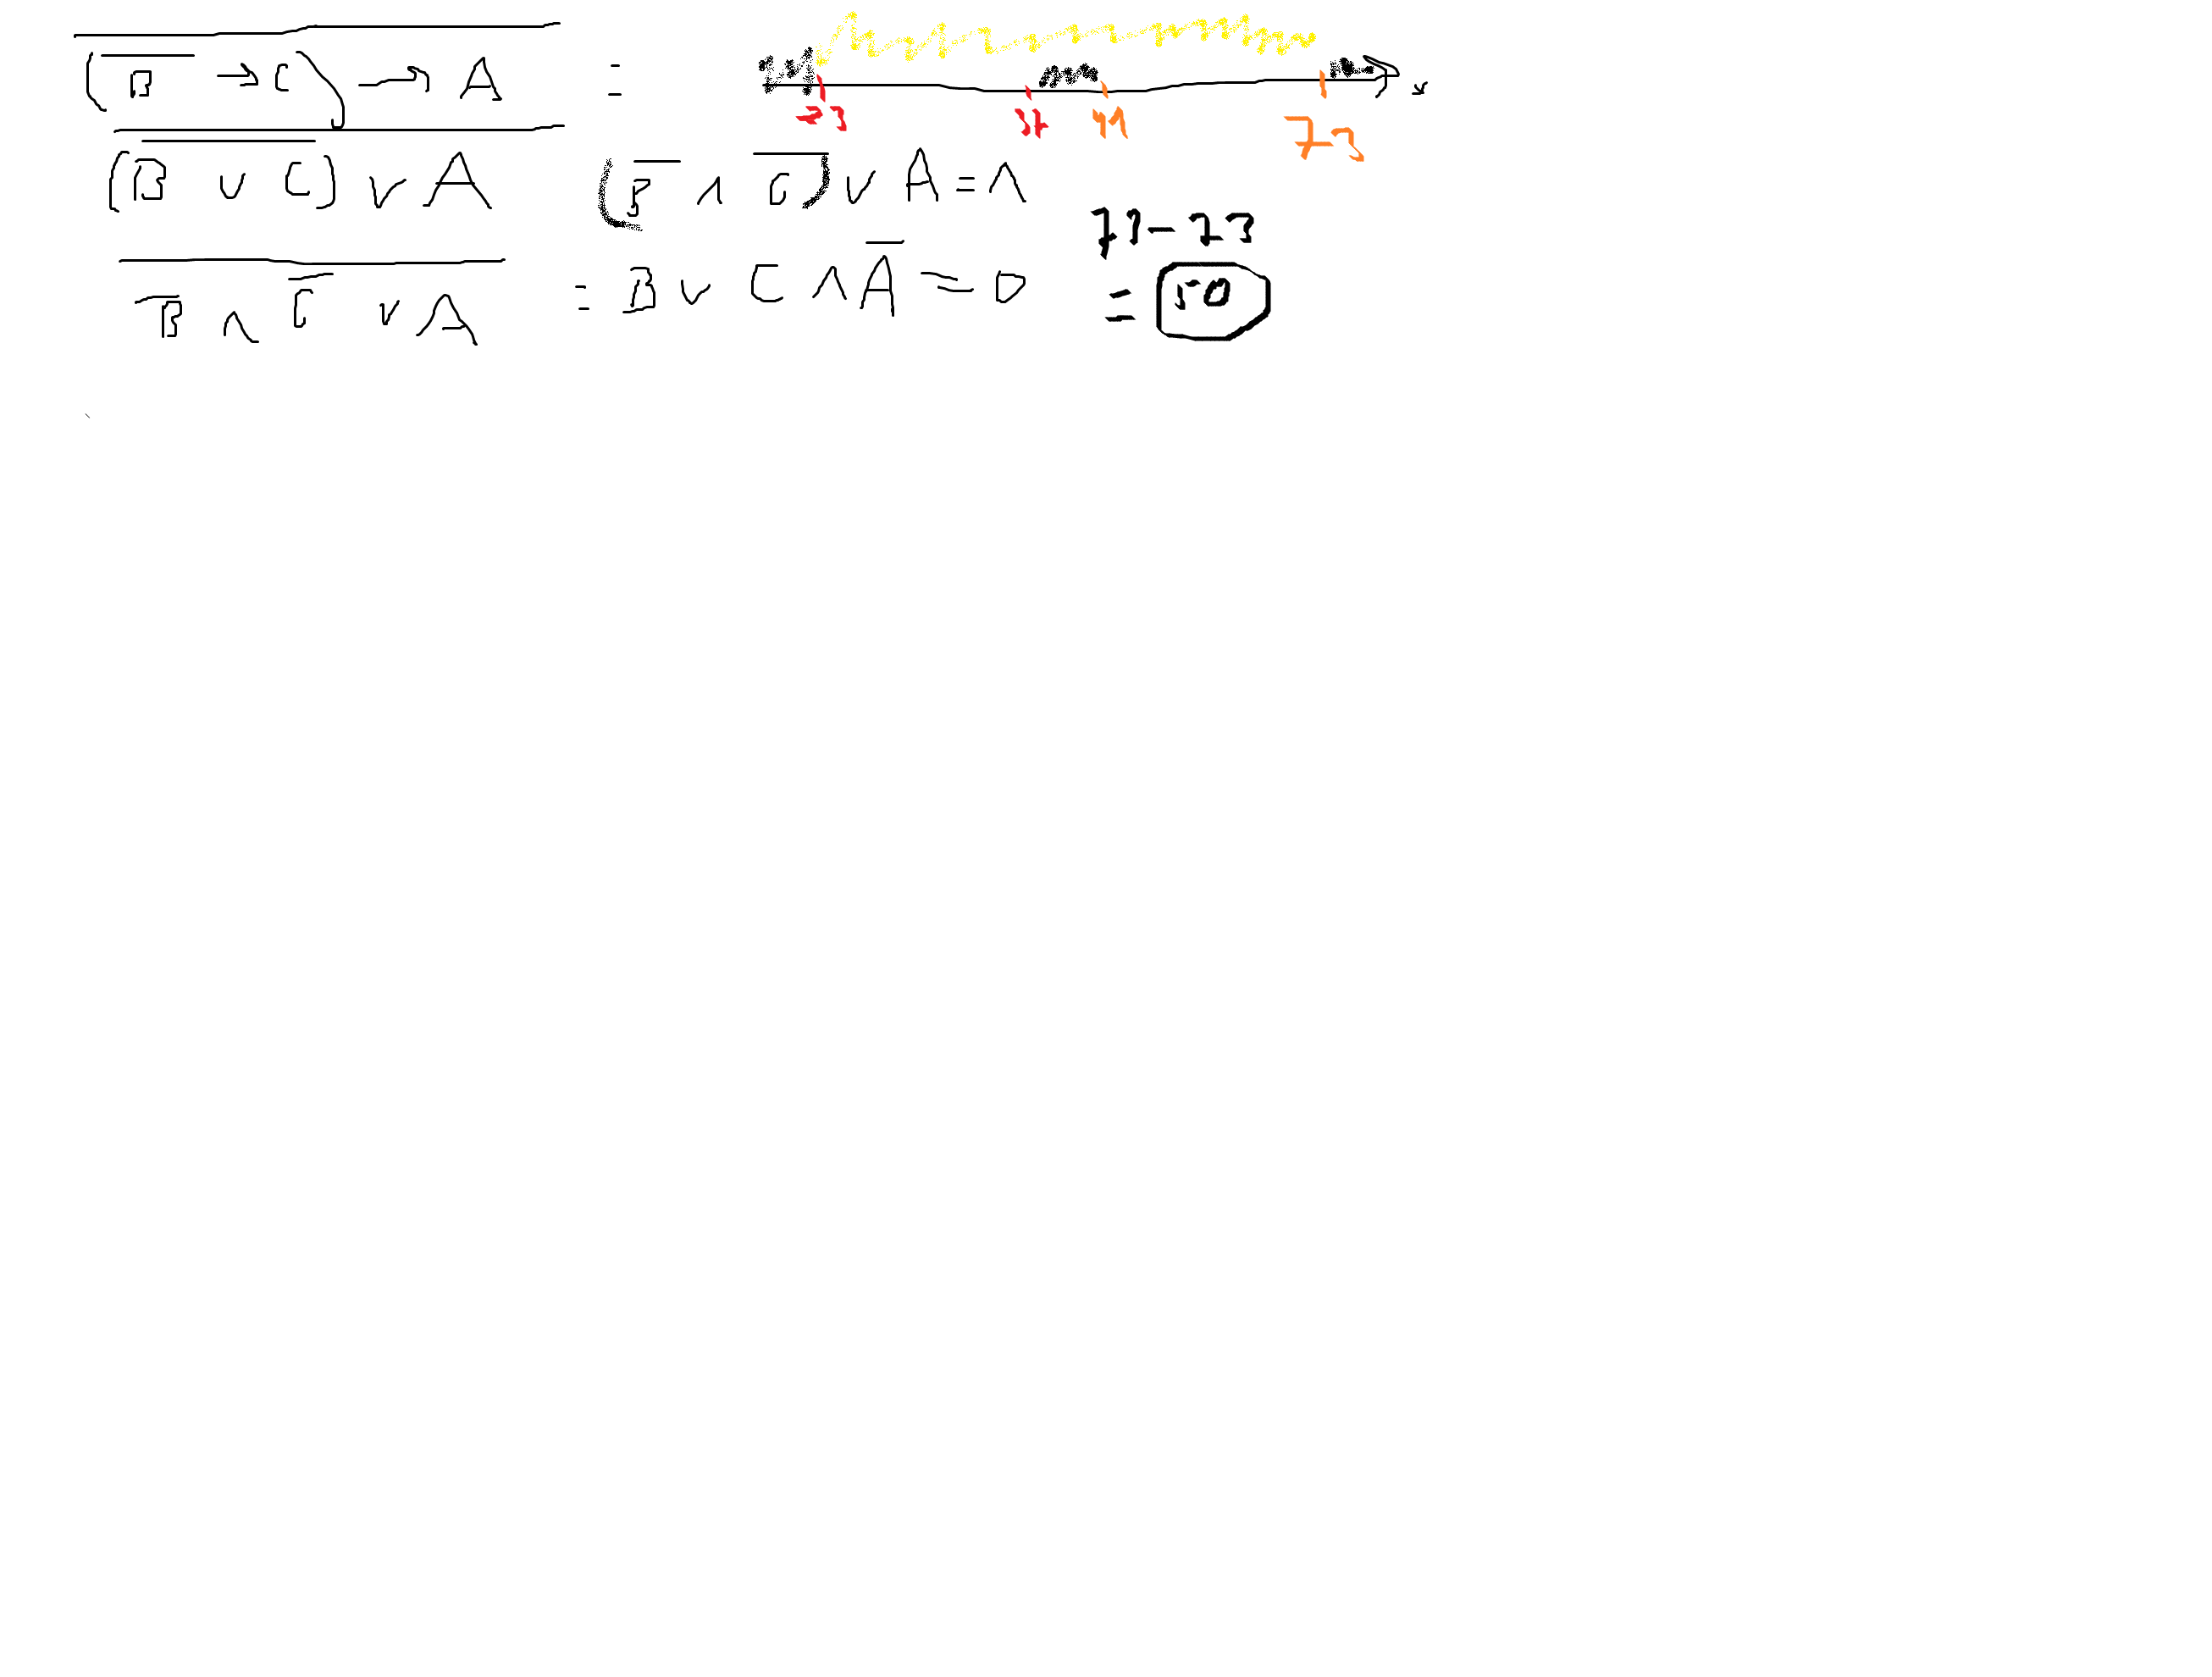 (B̅ → C) → A =
(B ∨ C) ∨ A
B̅ ∧ C̅ ∨ A
(B̅ ∧ C̅) ∨ A = 1
= B ∨ C ∧ A̅ = 0
23 37 41 73 x
73 - 23
= 50